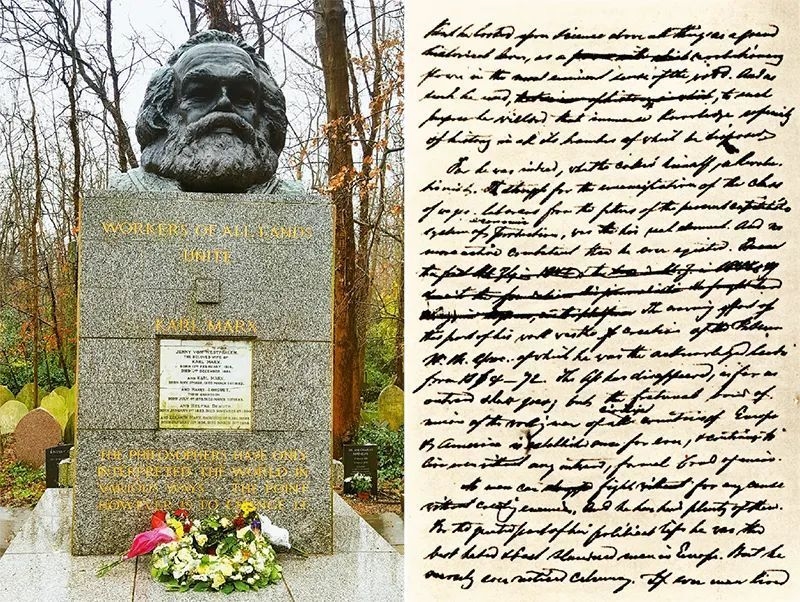 WORKERS OF ALL LANDS
UNITE
KARL MARX
JENNY VON WESTPHALEN,
THE BELOVED WIFE OF
KARL MARX,
BORN 12TH FEBRUARY 1814,
DIED 2ND DECEMBER 1881.
AND KARL MARX,
BORN MAY 5TH 1818, DIED MARCH 14TH 1883.
AND HARRY LONGUET,
THEIR GRANDSON,
BORN JULY 4TH 1878, DIED MARCH 20TH 1883.
AND HELENE DEMUTH,
THE PHILOSOPHERS HAVE ONLY
INTERPRETED THE WORLD IN
VARIOUS WAYS · THE POINT
HOWEVER IS TO CHANGE IT
he looked upon science above all things as a grand
historical lever, as a revolutionary
power in the most eminent sense of the word. And as
such he used, to such
purpose he wielded that immense knowledge, especially
of history in all its branches of which he disposed
For he was indeed, what he called himself, a Revolu-
tionist. The struggle for the emancipation of the class
of wages labourers from the fetters of the present capitalist
system of production, was his real element. And no
more active combatant than he ever existed.
the crowning effort of
this part of his work was the creation of the
of which he was the acknowledged leader
from 1864–72. The has disappeared, as far as
outward show goes; but the fraternal bond of
union of the working men of all countries of Europe
& America is established once for ever, & continues to
live even without any outward, formal bond of union.
No man can fight without for any cause
without creating enemies. And he has had plenty of them.
For the greater part of his political life he was the
best hated & best slandered man in Europe. But he
scarcely ever noticed calumny. If ever man lived